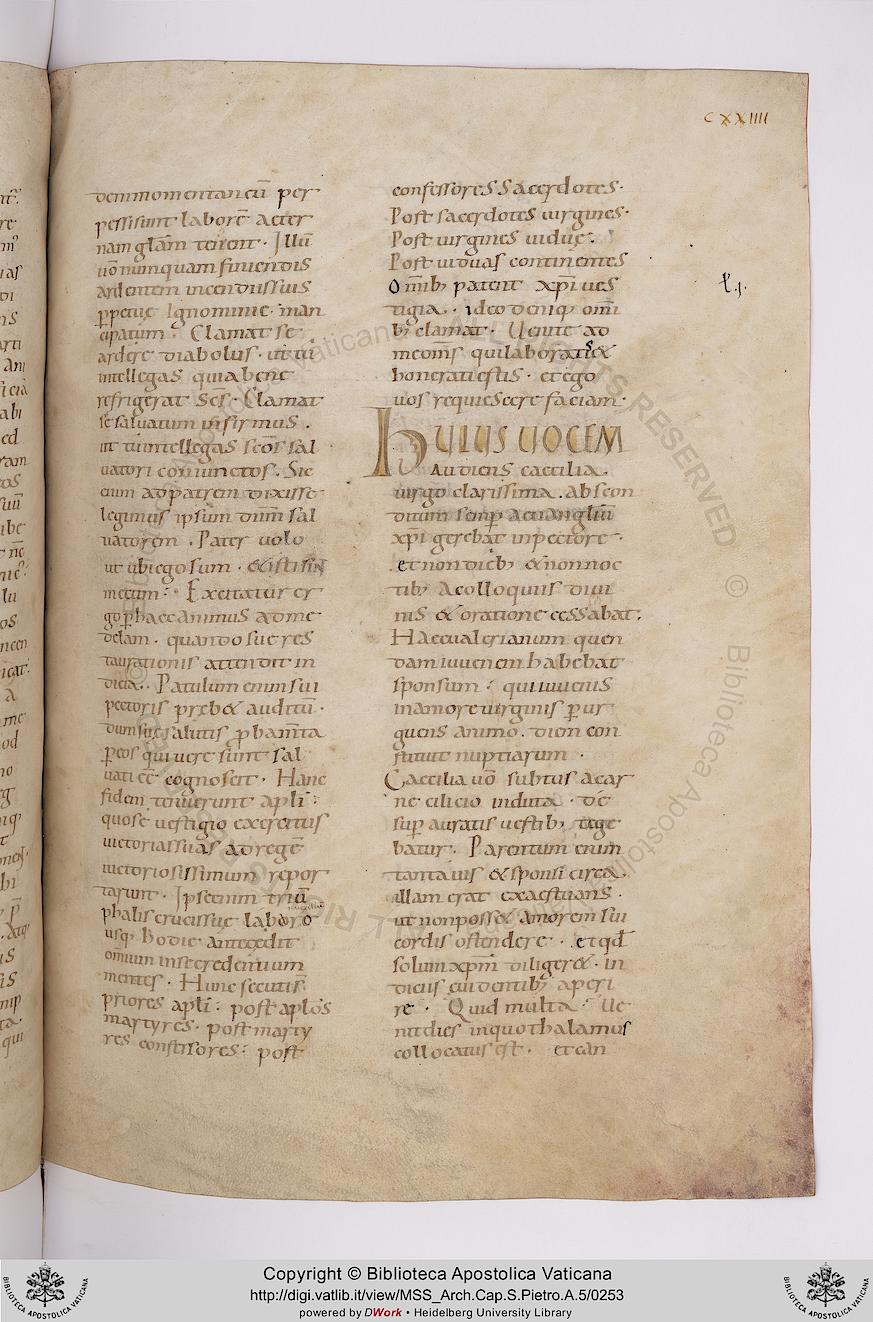 CXXIIII
demmomentaneū per
pessisunt laborē aeter
nam glam tenent· Illū
uō nunquam finiendis
ardentem incendiis suis
ppetuę Ignominię· man
cipatum· Clamat se
ardere diabolus· ut tu
intellegas quia bene
refrigerat scs· Clamat
se saluatum infirmus·
ut tu intellegas scōs sal
uatori coniunctos· Sic
enim adpatrem dixisse
legimus ipsum dnm̄ sal
uatorem· Pater uolo
ut ubiegosum· &istisin̄
mecum· Excitatur er
go phaec animus adme
delam· quando suę res
taurationis attendit in
dicia·· Patulum enim sui
pectoris preb& auditū·
dum suę salutis pbam̄ta
peos qui uere sunt sal
uati eē cognoscit· Hanc
fidem tenuerunt apli:
quose uestigio exercitus
uictorias suas adregē
uictoriosissimum repor
tarunt· Ipse enim triū
phalis crucis suę labōro
usq; hodie antecedit
omīum insecredentium
mentes· Hunc secuti s̄
priores apli: post aplos
martyres· post marty
res confessores: post
confessoreS Sacerdotes·
Post sacerdotes uirgines·
Post uirgines uiduę·
Post uiduas continentes
Omīb; patent xpi ues
tigia· ideo deniq; omī
b; clamat· Uenite ad
meom̄s quilaboratis &
honeratiestis· et ego
uos requiescere faciam·
ł·j·
HUIUS UOCEM
Audiens caecilia·
uirgo clarissima· abscon
ditum semp aeuangliū
xpi gerebat inpectore·
et nondieb; & non noc
tib; Acolloquiis diui
nis & oratione cessabat·
Haec ualerianum quen
dam iuuenem habebat
sponsum: qui iuuenis
inamore uirginis pur
guens animo· diem con
stituit nuptiarum·
Caecilia uō subtus acar
ne cilicio induta· de
sup auratis uestib; tege
batur· Parentum enim
tanta uis & sponsi circa
illam erat exaestuans·
ut nonposs& Amorem sui
cordis ostendere· et qđ
solum xpm̄ diliger&· in
diciis euidentib; aperi
re· Quid multa· Ue
nit dies inquo thalamus
collocatus est· et can
Copyright © Biblioteca Apostolica Vaticana
http://digi.vatlib.it/view/MSS_Arch.Cap.S.Pietro.A.5/0253
powered by DWork • Heidelberg University Library